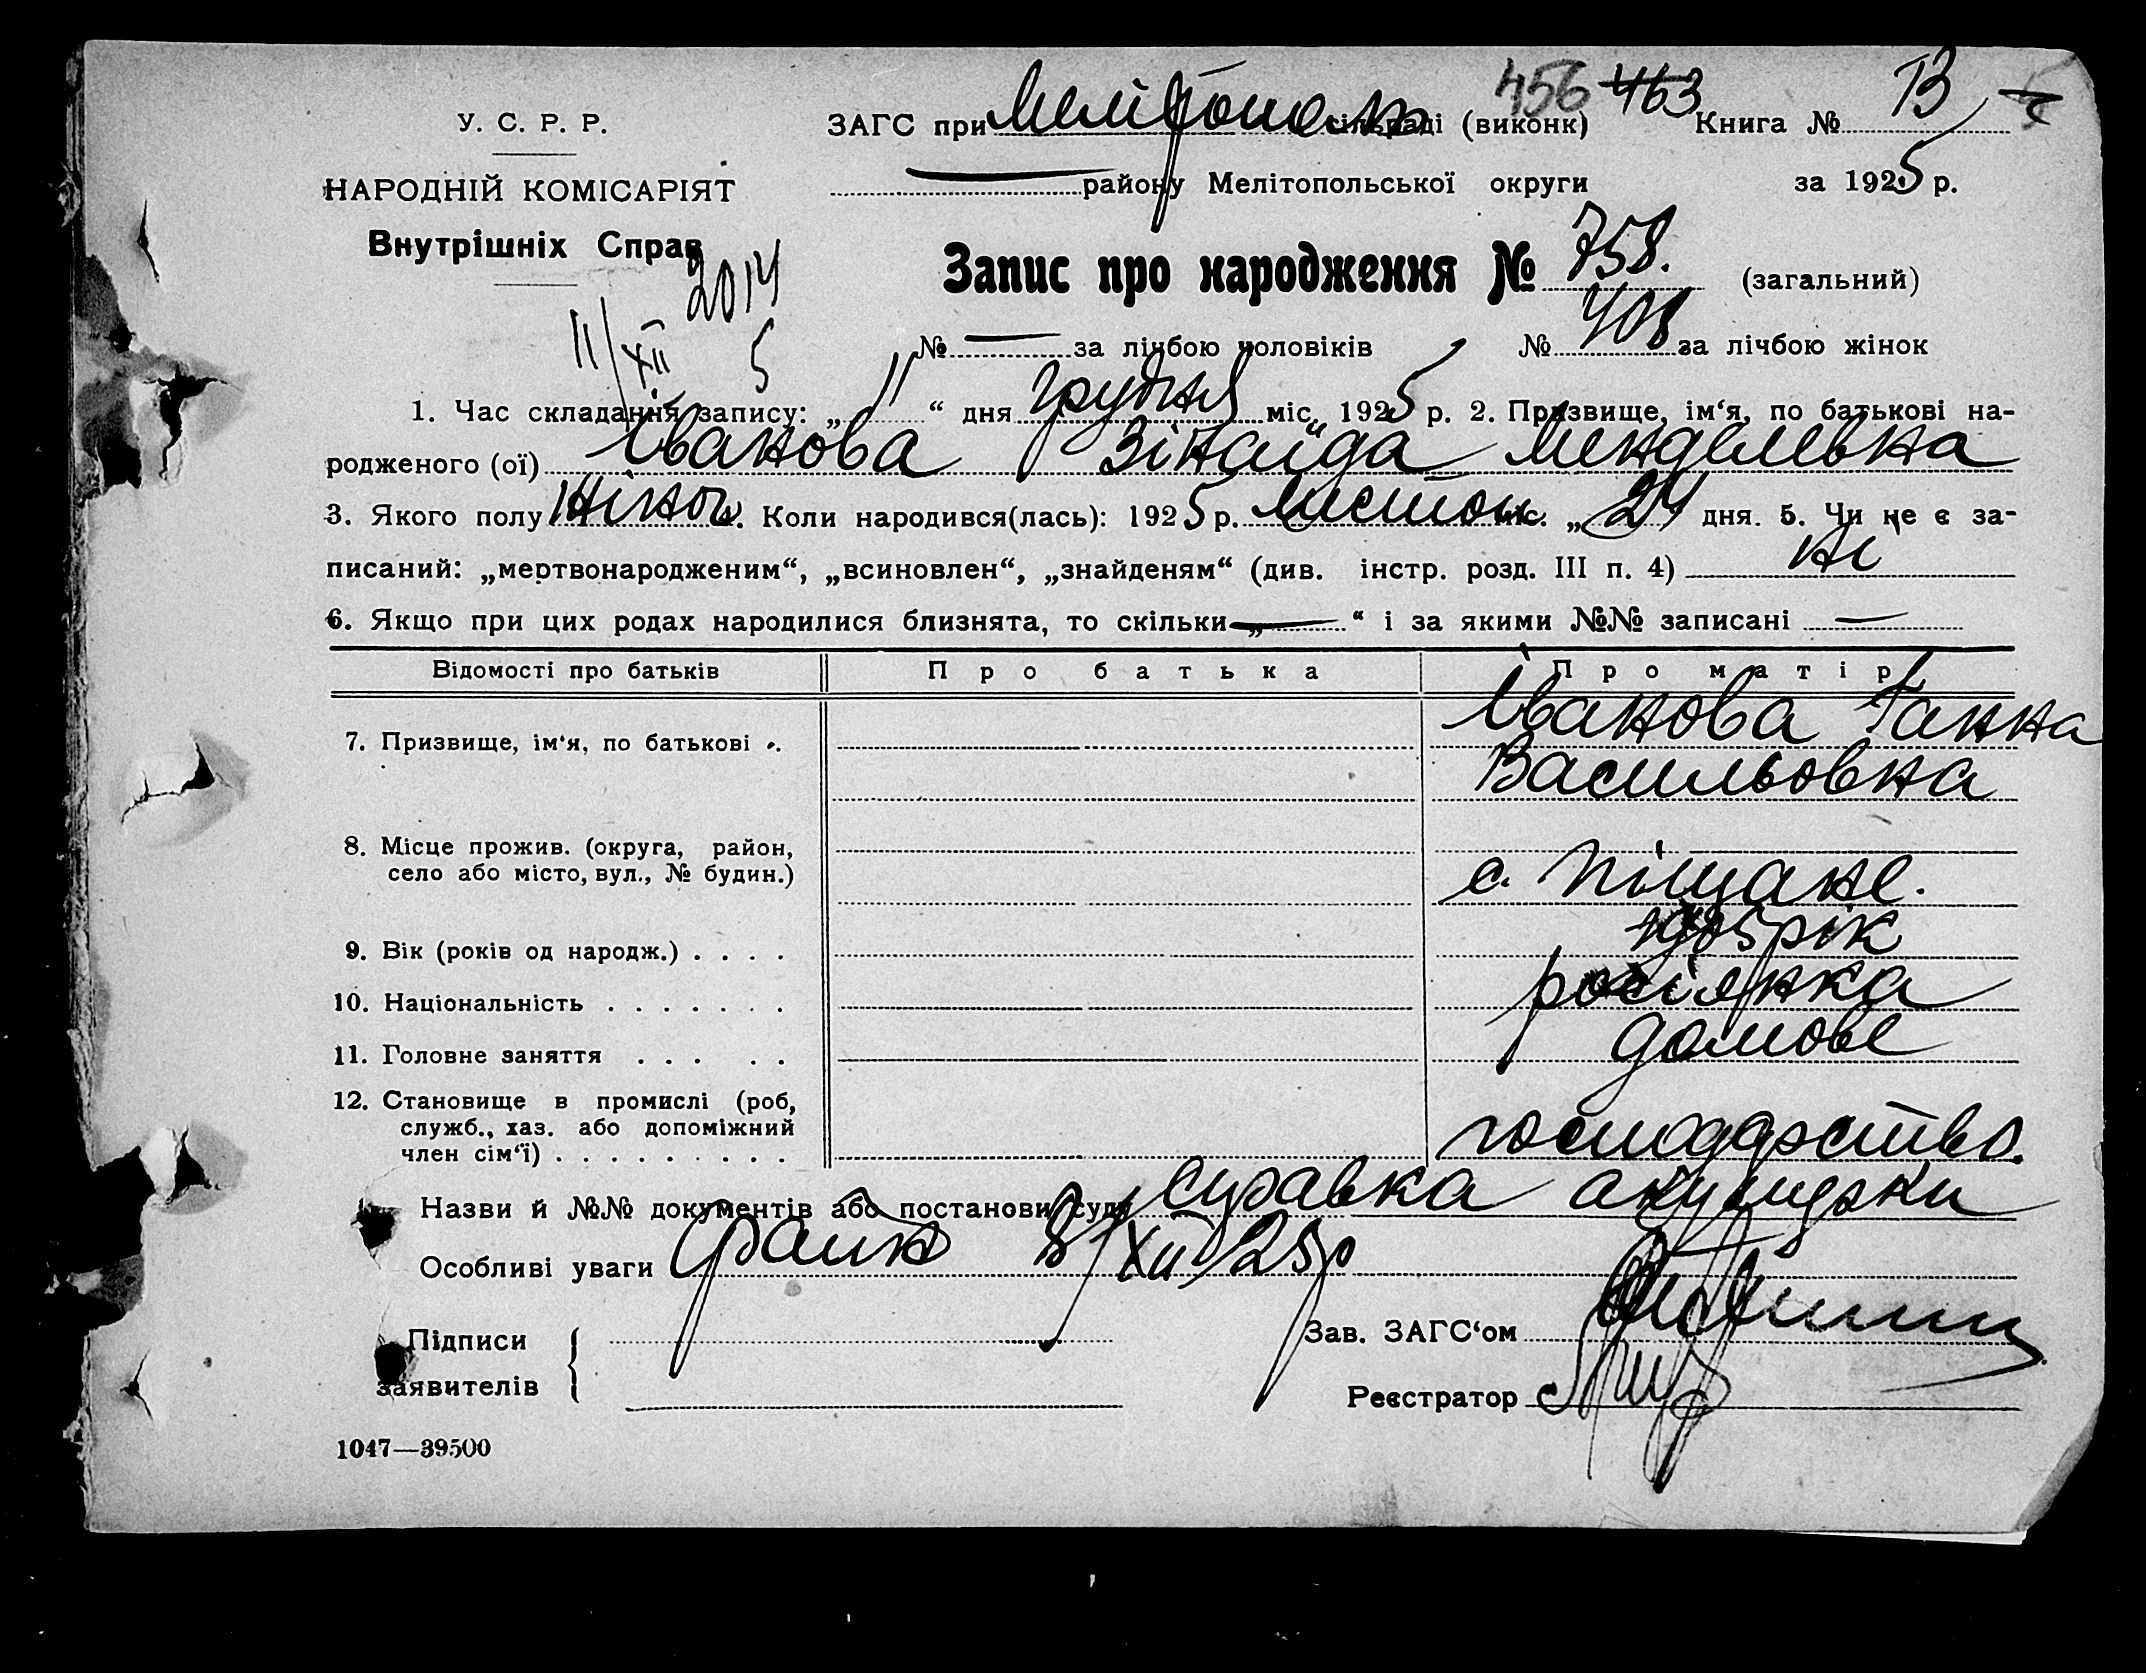 456 463 В 5
У. С. Р. Р. ЗАГС при Мелітополь сільраді (виконк) Книга №
НАРОДНІЙ КОМІСАРІЯТ району Мелітопольської округи за 1925 р.
Внутрішніх Справ
2014 Запис про народження № 758. (загальний)
11/XII 5 № — за лічбою чоловіків № 408 за лічбою жінок
1. Час складання запису: „11“ дня грудня міс. 1925 р. 2. Призвище, ім‘я, по батькові на-
родженого (ої) Іванова Зінаїда Менделевна
3. Якого полу жіноч. 4. Коли народився(лась): 1925 р. листоп. міс. „24 дня. 5. Чи не є за-
писаний: „мертвонародженим“, „всиновлен“, „знайденям“ (див. інстр. розд. III п. 4) ні
6. Якщо при цих родах народилися близнята, то скільки „—“ і за якими №№ записані —
Відомості про батьків Про батька Про матір
7. Призвище, ім‘я, по батькові . Іванова Ганна
Васильовна
8. Місце прожив. (округа, район,
село або місто, вул., № будин.) с. Піщане.
9. Вік (років од народж.) . . . . 1905 рік
10. Національність . . . . . . . росіянка
11. Головне заняття . . . . . домове
12. Становище в промислі (роб,
служб., хаз. або допоміжний
член сім‘ї) . . . . . . . . . господарство.
Назви й №№ документів або постанови суду справка акушерки
Особливі уваги 8/XII 25р
Підписи Зав. ЗАГС‘ом
заявителів Реєстратор
1047—39500